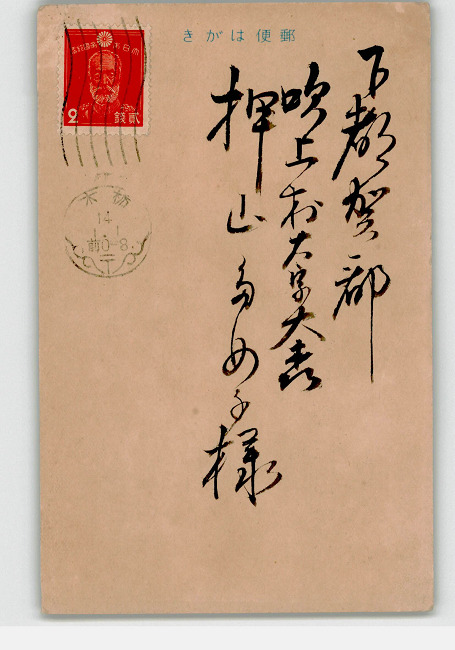 きがは便郵
下都賀郡
吹上村大字大森
押山
様
大日本帝國郵便
2
貳錢
栃木
14
1.1
前0-8